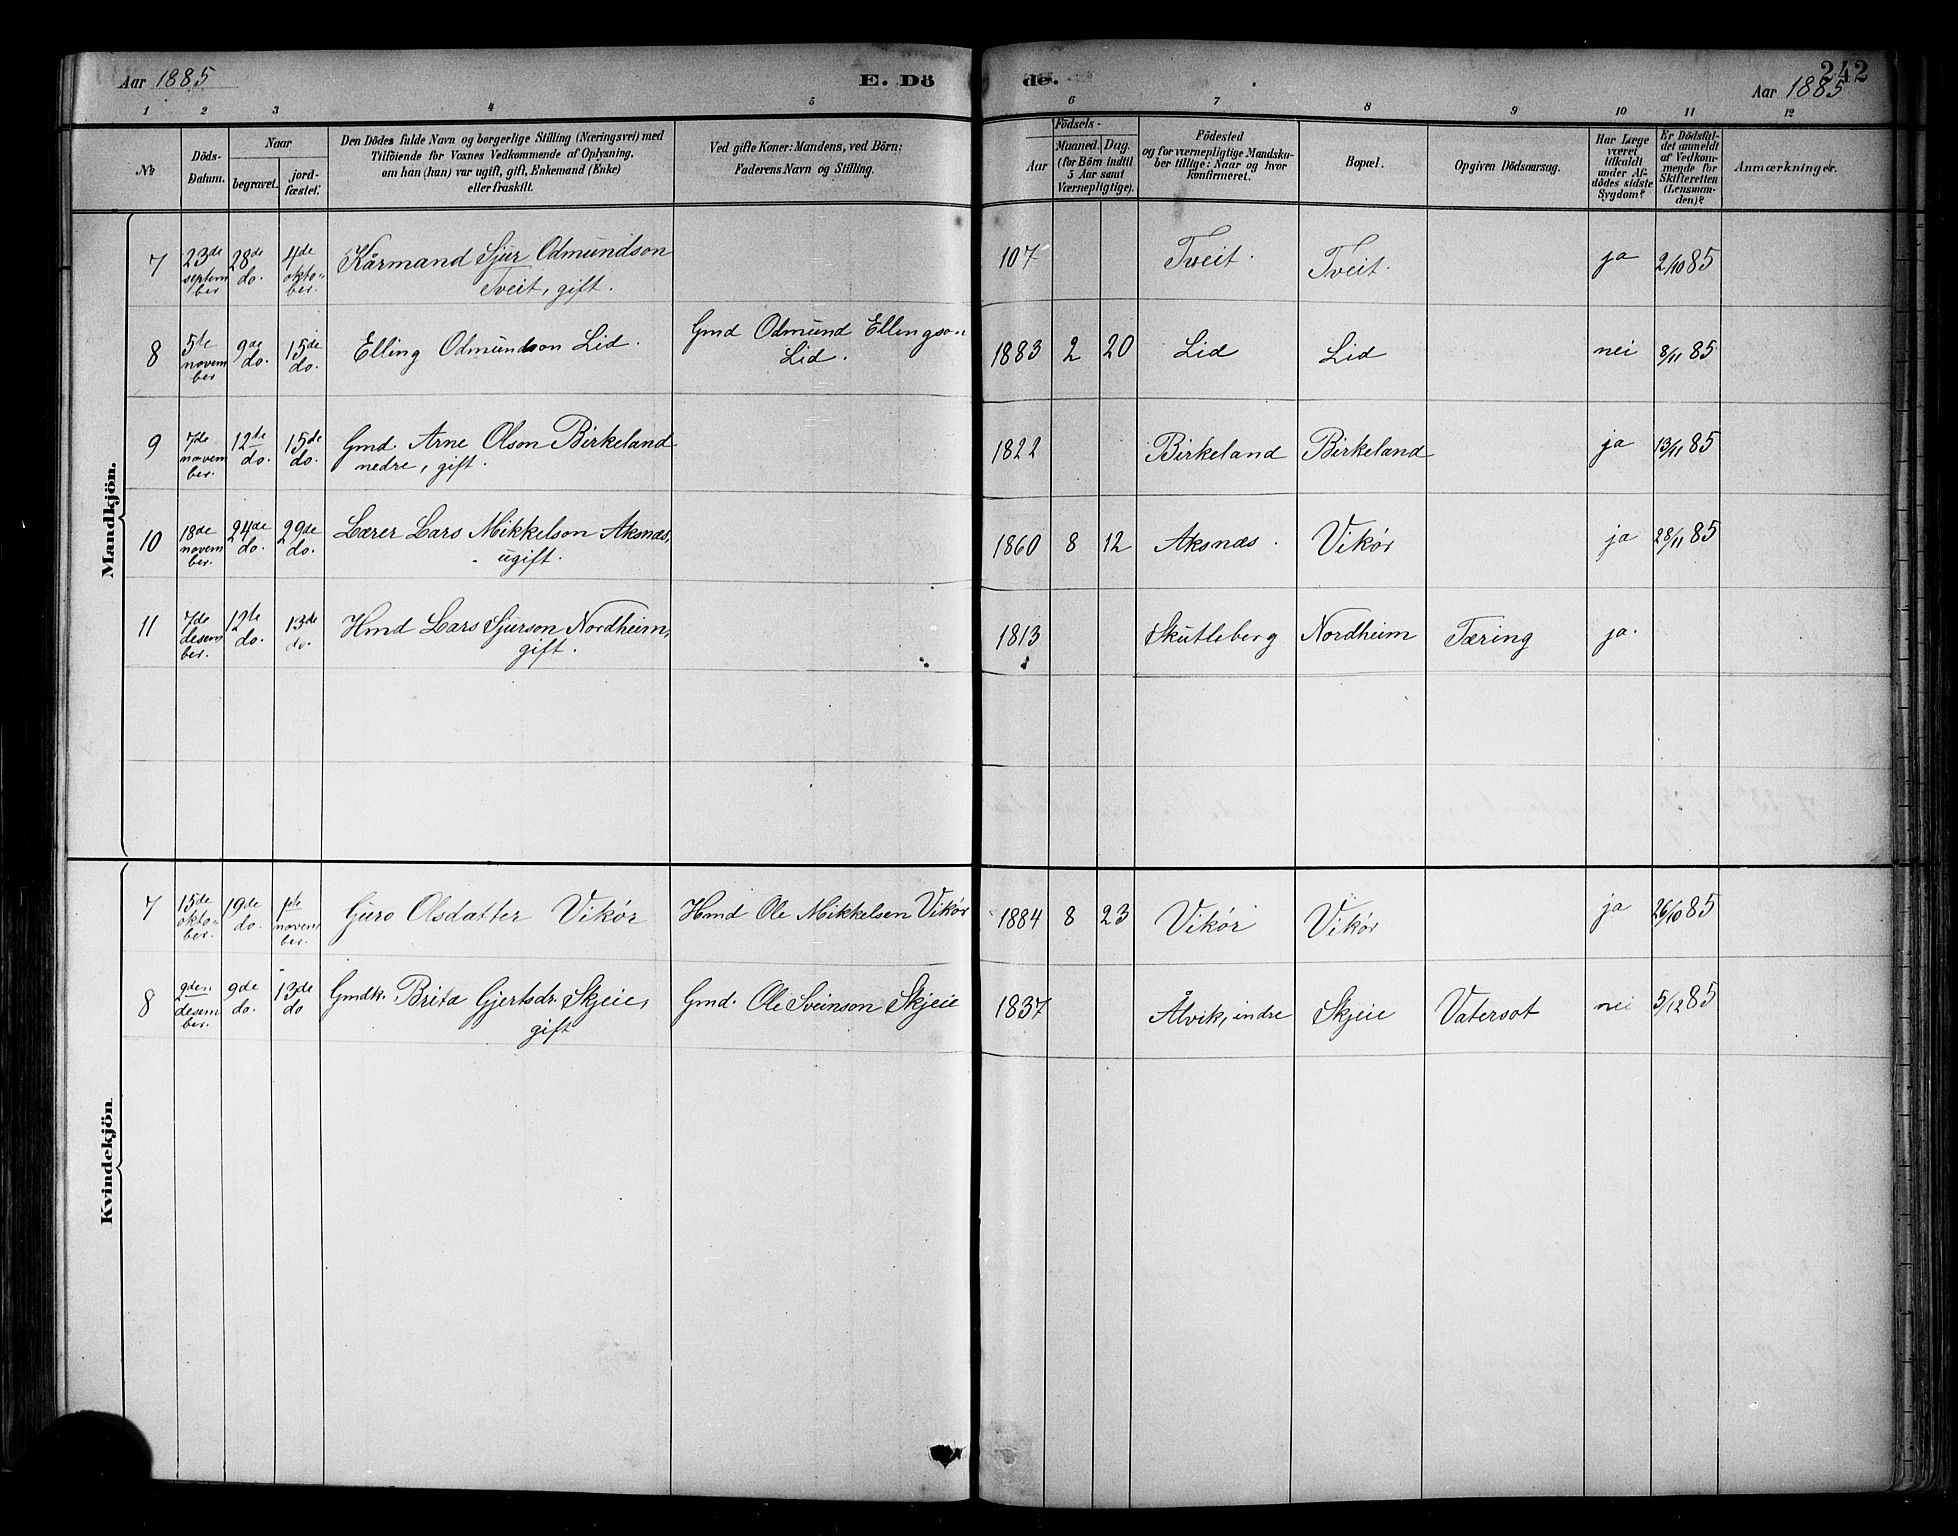 Aar 1885
E. Dö
de.
242
Aar 1885
1 2 3 4 5 6 7 8 9 10 11 12
№
Döds-Datum.
Naar
begravet.
jord-fæstet.
Den Dödes fulde Navn og borgerlige Stilling (Næringsvei) med
Tilföiende for Voxnes Vedkommende af Oplysning,
om han (hun) var ugift, gift, Enkemand (Enke)
eller fraskilt.
Ved gifte Koner: Mandens, ved Börn:
Faderens Navn og Stilling.
Födsels-
Aar
Maaned.
Dag.
(for Börn indtil
5 Aar samt
Værnepligtige).
Födested
og for værnepligtige Mandska-
ber tillige: Naar og hvor
konfirmeret.
Bopæl.
Opgiven Dödsaarsag.
Har Læge
været
tilkaldt
under Af-
dödes sidste
Sygdom?
Er Dödsfal-
det anmeldt
af Vedkom-
mende for
Skifteretten
(Lensman-
den)?
Anmærkninger.
Mandkjön.
7 23de september 28de do. 4de oktober. Kårmand Sjur Odmundson Tveit, gift. 107 Tveit. Tveit. ja 2/10 85
8 5te november 9de do. 15de do. Elling Odmundson Lid. Gmd Odmund Ellingson Lid. 1883 2 20 Lid Lid nei 8/11 85
9 7de november. 12te do. 15de do. Gmd. Arne Olson Birkeland nedre, gift. 1822 Birkeland Birkeland ja 13/11 85
10 18de november. 24de do. 29de do. Lærer Lars Mikkelson Aksnæs, ugift. 1860 8 12 Aksnæs. Vikør ja 28/11 85
11 7de desember. 12te do. 13de do. Hmd Lars Sjurson Nordheim, gift. 1813 Skutleberg Nordheim Tæring ja.
Kvindekjön
7 15de oktober. 19de do. 1ste november. Guro Olsdatter Vikør Hmd Ole Mikkelsen Vikør 1884 8 23 Vikør Vikør ja 26/10 85
8 2den desember. 9de do. 13de do Gmdk. Brita Gjertsdr. Skjeie, gift Gmd. Ole Sveinson Skjeie 1837 Ålvik, indre Skjeie Vatersot nei 5/12 85